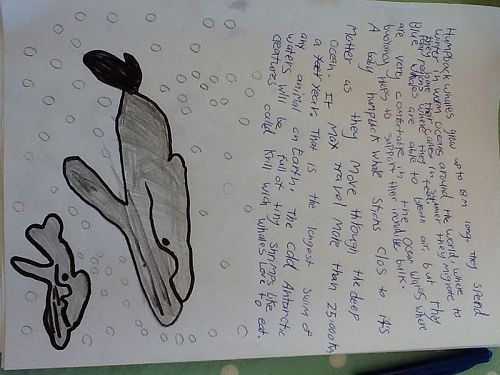 Humpback whales grow up to 18m long. they spend
winter in warm oceans around the world. where to
they regions where they in summer they migrate
Blue whales are able to bream air but They
are very comfortable in the ocean where
buoyancy helps to support their incredible bulk.
A baby humpback whale Stans clos to it's
Mother as they Move through the deep
Ocean. It Max travel More than 25.000km
a Year. That is the longest Swim of
any animal on Earth. The cold Antarctic
waters will be full of tiny shrimps like
creatures called krill wich whales Love to eat.